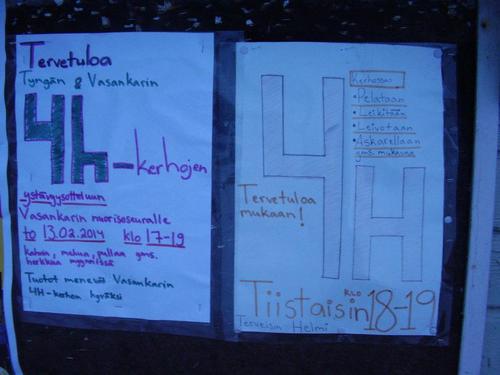 Tervetuloa
Tyngän & Vasankarin
4h-kerhojen
ystävyysotteluun
Vasankarin nuorisoseuralle
to 13.02.2014 klo 17-19
kahvia, mehua, pullaa yms.
herkkua myynnissä
Tuotot menevät Vasankarin
4H-kerhon hyväksi
4H
Kerhossa
• Pelataan
• Leikitään
• Leivotaan
• Askarellaan
yms mukavaa
Tervetuloa
mukaan!
Tiistaisin klo 18-19
Terveisin Helmi